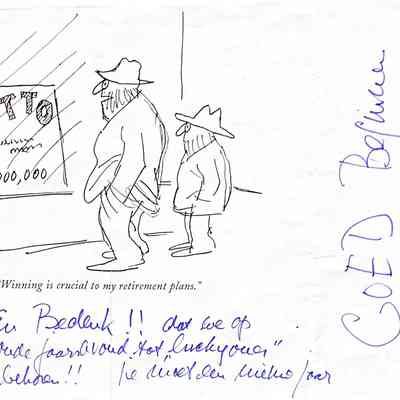 TTO
000,000
"Winning is crucial to my retirement plans."
En Bedenk!! dat we op
oudejaarsavond tot "lucky ones"
behoren!! je moet een nieuw jaar
GOED Beginnen